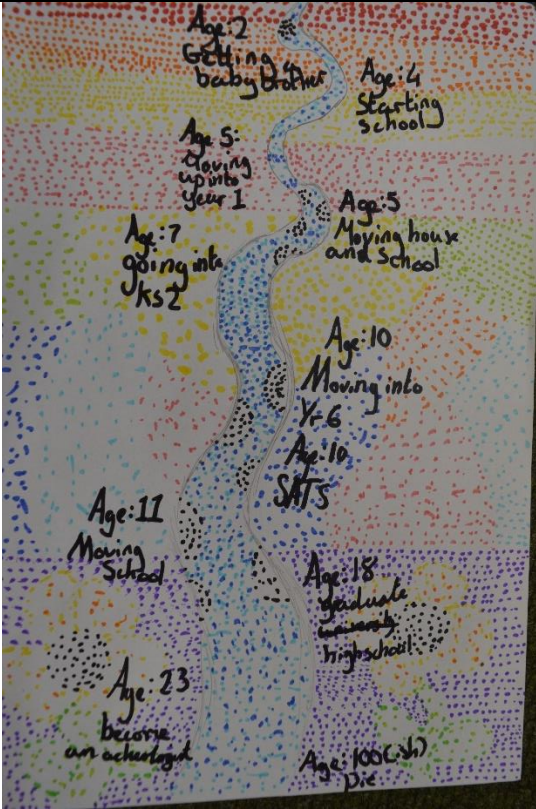 Age:2
Getting a
baby brother
Age:4
Starting
school
Age 5:
Moving
up into
Year 1
Age:5
Moving house
and School
Age:7
going into
KS2
Age:10
Moving into
Yr 6
Age:10
SATS
Age:11
Moving
School
Age:18
graduate
university
highschool
Age:23
become
an acheologist
Age:100(ish)
Die